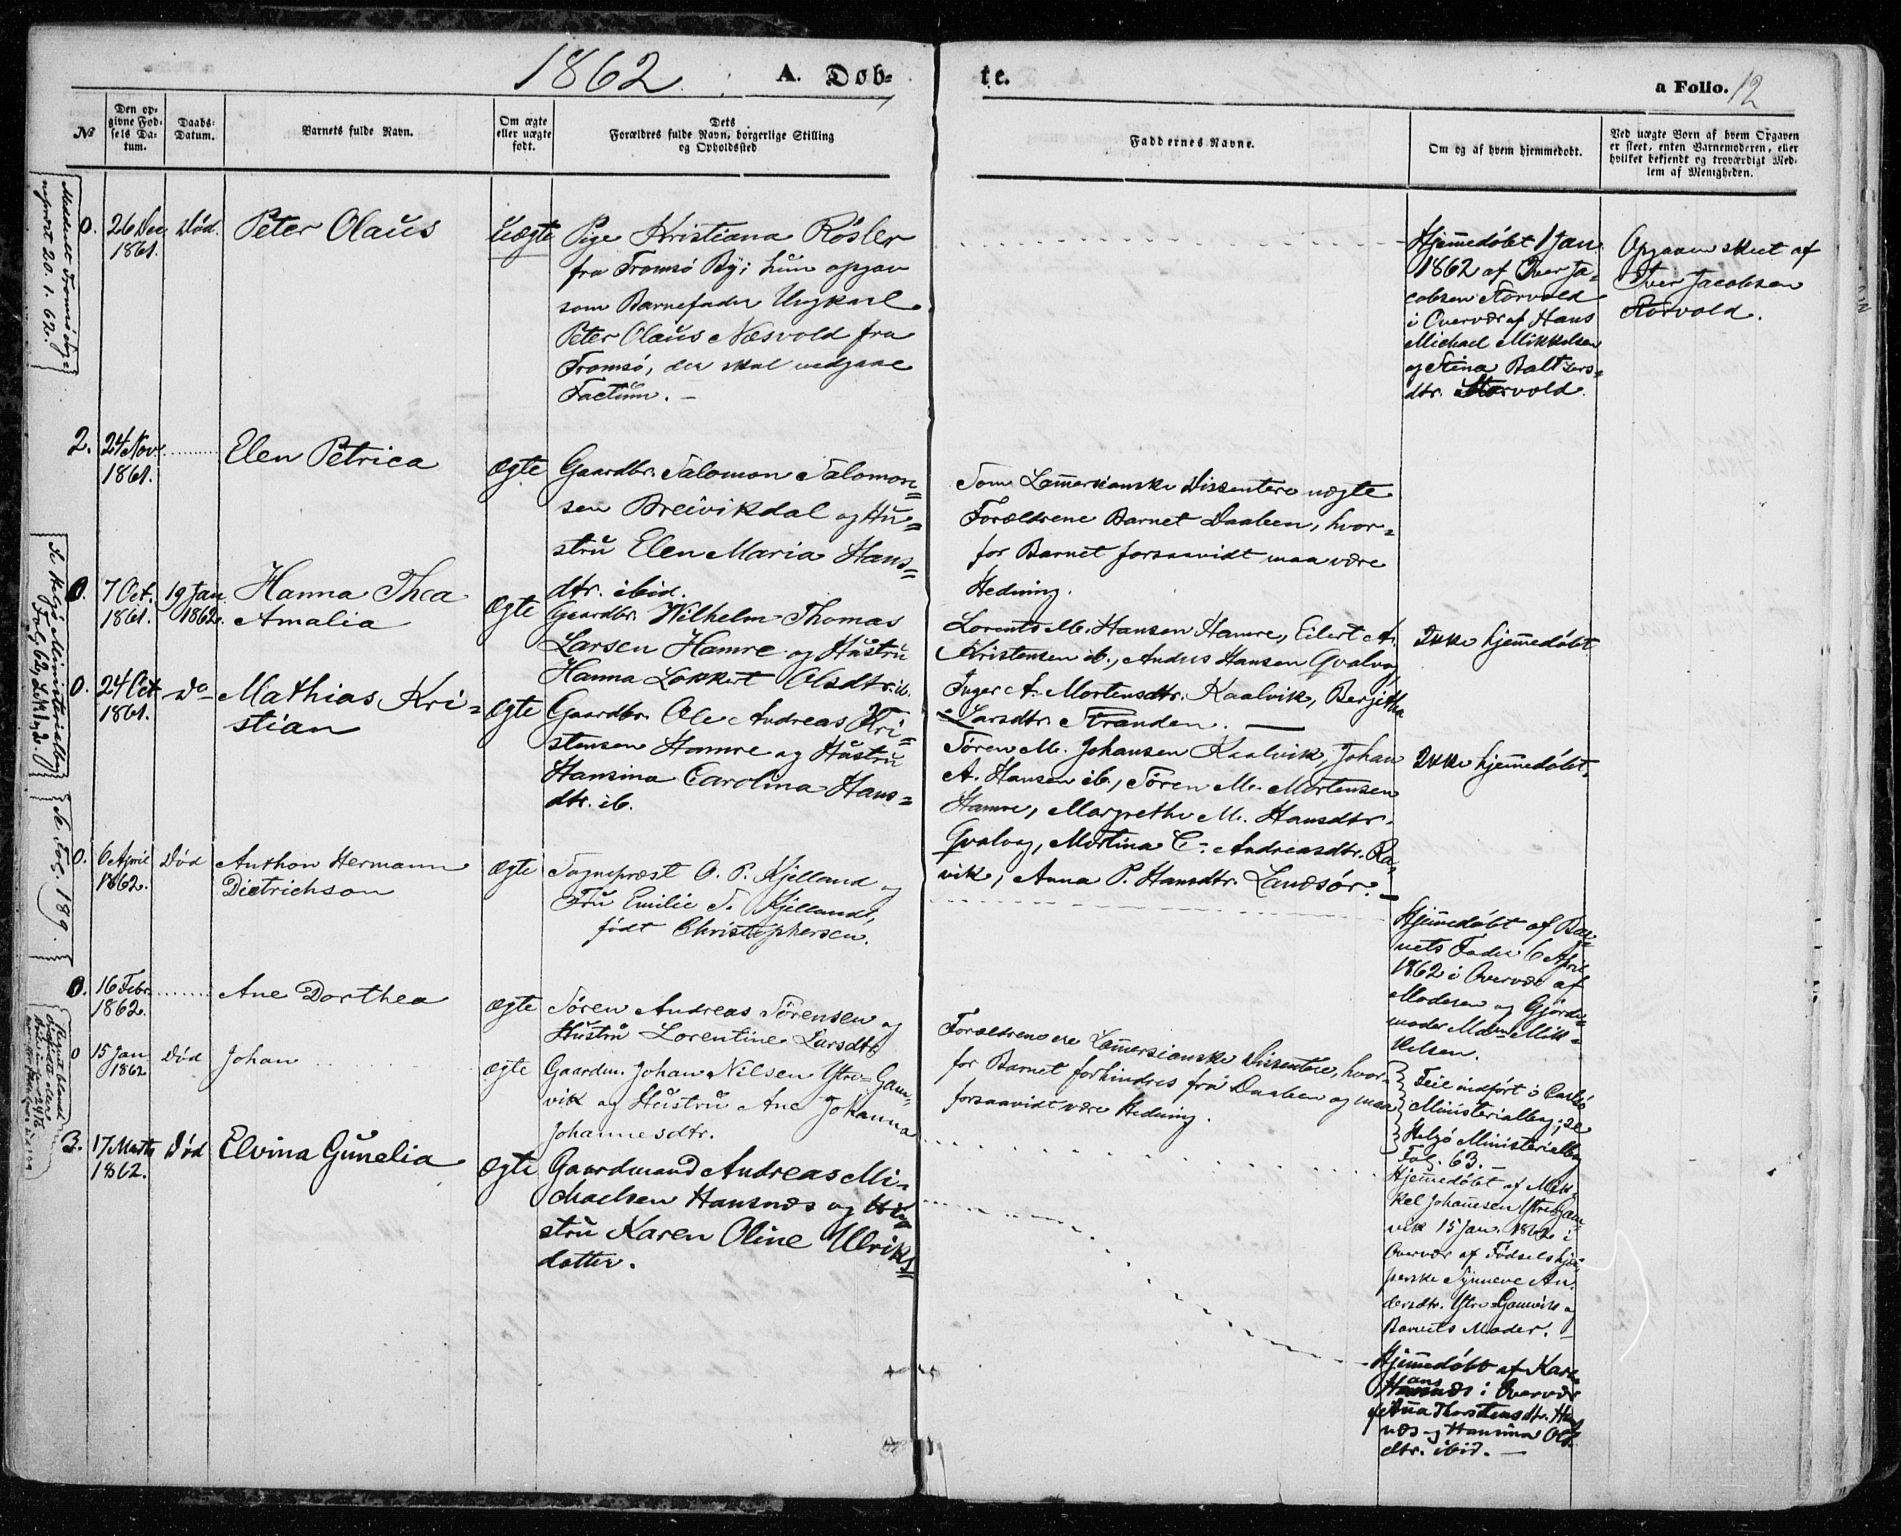 1862.
A. Døb-
te.
a Folio. 12
№
Den op-
givne Fød-
sels Da-
tum.
Daabs-
Datum.
Barnets fulde Navn.
Om ægte
eller uægte
født.
Dets
Forældres fulde Navn, borgerlige Stilling
og Opholdssted
Faddernes Navne.
Om og af hvem hjemmedøbt.
Ved uægte Børn af hvem Opgaven
er skeet, enten Barnemoderen, eller
hvilket bekjendt og troværdigt Med-
lem af Menigheden.
Meddelt Tromsø By=
20. 1. 62.
0. 26 Dec
1861.
Død.
Peter Olaus
Uægte
Pige Kristiana Rösler
fra Tromsö By; hun opgav
som Barnefader Ungkarl
Peter Olaus Næsvold fra
Tromsø, der skal vedgaae
Factum. —
Hjemedøbt 1 Jan.
1862 af Iver Ja-
cobsen Storvold
i Overvær af Hans
Michael Mikkelsen
og Stina Baltzers=
dtr. Storvold.
Opgaven skeet af
Iver Jacobsen
Storvold.
2. 24 Nov.
1861.
Elen Petrica
Ægte
Gaardbr. Salomon Salomon=
sen Breivikdal og Hu=
stru Elen Maria Hans=
dtr. ibid.
Som Lamersianske Dissentere nægte
Forældrene Barnet Daaben, hvor=
for Barnet forsaavidt maa være
Hedning.
0. 7 Oct.
1861.
19 Jan
1862.
Hanna Thea
Amalia
Ægte
Gaardbr. Wilhelm Thomas
Larsen Hamre og Hustru
Hanna Lokket Olsdtr. ib.
Lorents M. Hansen Hamre, Eilert A.
Kristensen ib., Anders Hansen Qvalvog
Inger A. Mortensdtr. Kaalvik, Berjitha
Larsdtr. Stranden. —
Ikke hjemedøbt.
0. 24 Oct
1861.
Do
Mathias Kri=
stian
Ægte
Gaardbr. Ole Andreas Kri=
stensen Hamre og Hustru
Hansina Carolina Hans=
dtr. ib.
Søren M. Johansen Kaalvik, Johan
A. Hansen ib., Søren M. Mortensen
Hamre, Margrethe M. Hansdtr.
Qvalvog, Mortina C. Andreasdtr. Ra=
vik, Anna P. Hansdtr. Landsör. —
Ikke hjemedøbt.
Fol. 189.
0. 6 April
1862.
Død
Anthon Hermann
Dietrichson
Ægte
Sognepræst O. P. Kjelland og
Fru Emilie S. Kjelland,
født Christophersen.
Hjemedøbt af Bar=
nets Fader 6 April
1862 i Overvær af
Moderen og Gjorde=
moder Mdm Mik=
kelsen.
0. 16 Febr.
1862.
Ane Dorthea
Ægte
Søren Andreas Sørensen og
Hustru Lorentine Larsdtr.
Forældrene ere Lamersianske Dissentere, hvor=
for Barnet forhindres fra Daaben og maa
forsaavidt være Hedning.
Feil indført i Carlsö
Ministerialbog; se
Helgö Ministerialbog
Fol. 63. —
0 15 Jan
1862
Død
Johan
Ægte
Gaardm. Johan Nilsen Ytre=Gam=
vik og Hustru Ane Johanna
Johannesdtr.
Hjemedøbt af Mik=
kel Johanesen Ytre Gam=
vik 15 Jan. 1862 i
Overvær af Fødselshjæl=
perske Synneve An=
dersdtr. Ytre=Gamvik og
Barnets Moder. —
3. 17 Marts
1862.
Død
Elvina Gunelia
Ægte
Gaardmand Andreas Mi=
chaelsen Hansnæs og Hu=
stru Karen Oline Ulriks=
datter.
Hjemedøbt af Karl
Hansnæs i Overvær
af Ana Thorstensdtr. Hans
næs og Hansina Ols
dtr. ibid. —